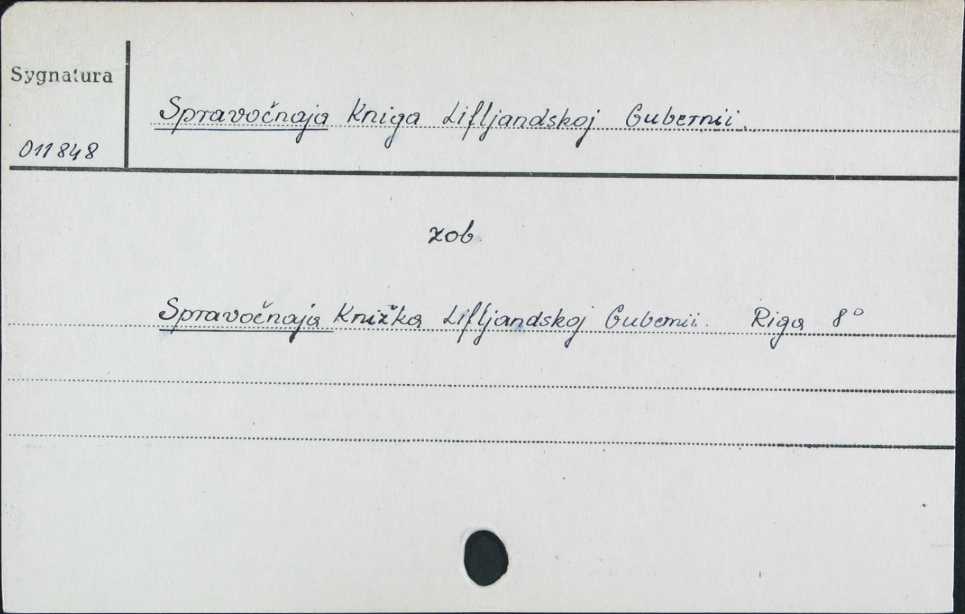 Sygnatura
Spravočnaja Kniga Lifljandskoj Gubernii.
011848
zob
Spravočnaja Knižka Lifljandskoj Gubernii. Riga 8°